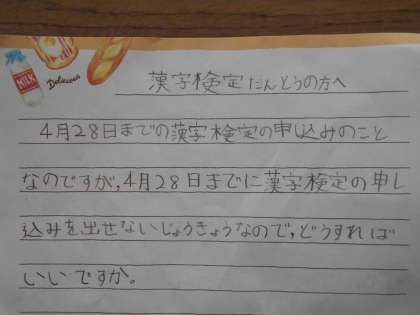 MILK
Delicious
漢字検定たんとうの方へ
4月28日までの漢字検定の申込みのこと
なのですが,4月28日までに漢字検定の申し
込みを出せないじょうきょうなので,どうすれば
いいですか。